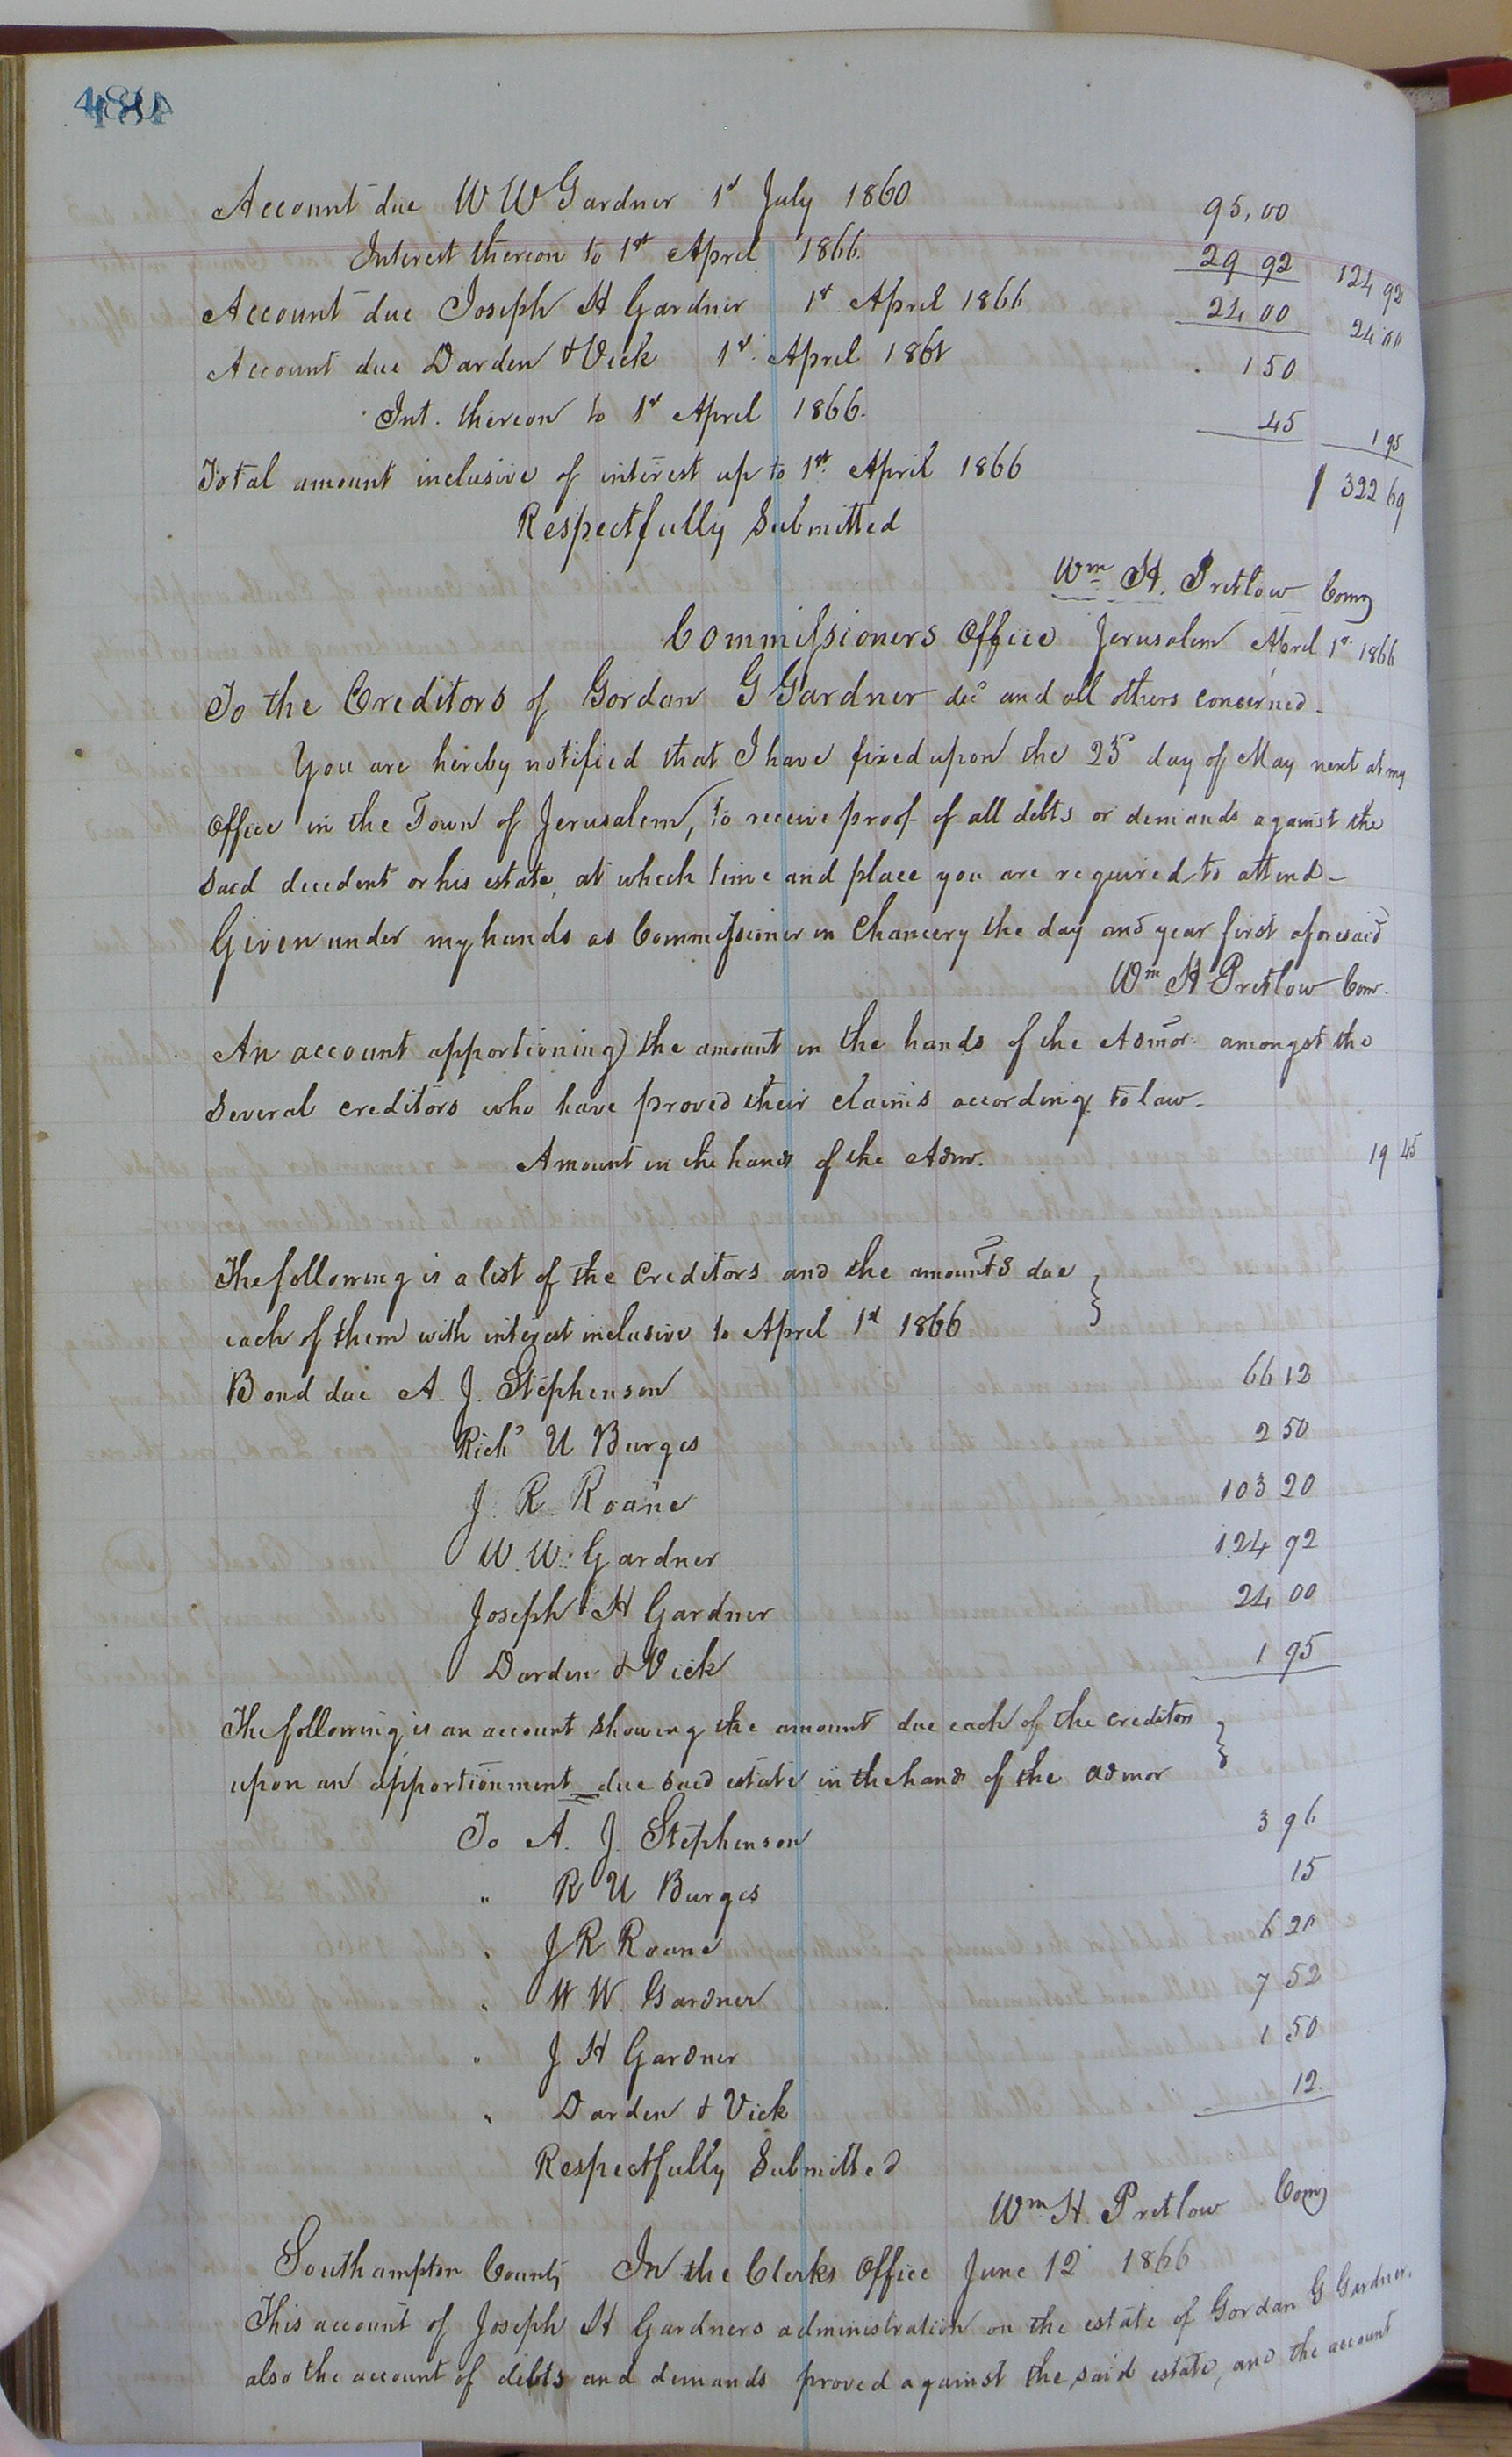 484
Account due W W Gardner 1st July 1860 95,00
Interest thereon to 1st April 1866. 29 92 124 92
Account due Joseph H Gardner 1st April 1866 24 00 24 00
Account due Darden & Vick 1st April 1861 1 50
Int. thereon to 1st April 1866. 45 1 95
Total amount inclusive of interest up to 1st April 1866 322 69
Respectfully Submitted
Wm H. Pretlow Comr
Commissioners Office Jerusalem April 1st 1866
To the Creditors of Gordan G Gardner decd and all others concerned.
You are hereby notified that I have fixed upon the 25 day of May next at my
Office in the Town of Jerusalem, to receive proof of all debts or demands against the
said decedent or his estate, at which time and place you are required to attend –
Given under my hands as Commissioner in Chancery the day and year first aforesaid
Wm H Pretlow Comr.
An account apportioning the amount in the hands of the Admor. amongst the
Several creditors who have proved their claims according to law.
Amount in the hands of the Admr. 19 45
The following is a list of the Creditors and the amounts due
each of them with interest inclusive to April 1st 1866
Bond due A. J. Stephenson 66 12
Richd U Burges 2 50
J. R Roane 103 20
W. W. Gardner 124 92
Joseph H Gardner 24 00
Darden & Vick 1 95
The following is an account showing the amount due each of the creditors
upon an apportionment due said estate in the hands of the admor
To A. J. Stephenson 3 96
" R U Burges 15
" J R Roane 6 20
" W W. Gardner 7 52
" J H Gardner 1 50
" Darden & Vick 12.
Respectfully Submitted
Wm H. Pretlow Comr
Southampton County In the Clerks Office June 12 1866
This account of Joseph H Gardners administration on the estate of Gordan G Gardner,
also the account of debts and demands proved against the said estate, and the account